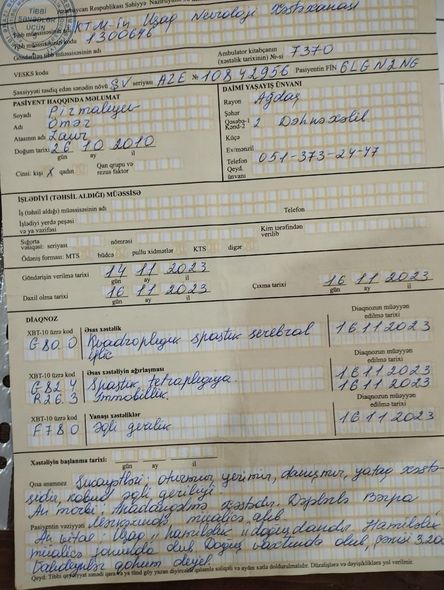 Azərbaycan Respublikası Səhiyyə
TİBBİ SƏNƏDLƏR ÜÇÜN
KTM-li Uşaq Nevroloji Xəstəxanası
Tibb müəssisəsinin adı
Tibb müəssisəsinin kodu 1300646
Göndərən tibb müəssisəsinin adı
Ambulator kitabçanın (xəstəlik tarixinin) №-si 7370
VESKS kodu
Şəxsiyyəti təsdiq edən sənədin növü ŞV seriyası AZE № 10842956 Pasiyentin FİN 6LGN2NG
PASİYENT HAQQINDA MƏLUMAT
Soyadı Pirməliyev
Adı Ömər
Atasının adı Zaur
Doğum tarixi 26 10 2010
gün ay il
Cinsi: kişi X qadın Qan qrupu və rezus faktor
DAİMİ YAŞAYIŞ ÜNVANI
Rayon Ağdaş
Şəhər
Qəsəbə-1 Kənd-2 2 Dəhnəxəlil
Küçə
Ev/mənzil
Telefon 051-373-24-47
Qeyd. ünvanı
İŞLƏDİYİ (TƏHSİL ALDIĞI) MÜƏSSİSƏ
İş (təhsil aldığı) müəssisəsinin adı Telefon
İşlədiyi yerdə peşəsi və ya vəzifəsi
Sığorta vəsiqəsi: seriyası nömrəsi Kim tərəfindən verilib
Ödəniş forması: MTS büdcə pullu xidmətlər KTS digər
Göndərişin verilmə tarixi 14 11 2023
gün ay il
Daxil olma tarixi 16 11 2023 Çıxma tarixi 16 11 2023
gün ay il gün ay il
DİAQNOZ
XBT-10 üzrə kod Əsas xəstəlik Diaqnozun müəyyən edilmə tarixi
G80.0 Kvadroplegik spastik serebral iflic 16.11.2023
XBT-10 üzrə kod Əsas xəstəliyin ağırlaşması Diaqnozun müəyyən edilmə tarixi
G82.4 Spastik tetraplegiya 16.11.2023
R26.3 İmmobillik 16.11.2023
XBT-10 üzrə kod Yanaşı xəstəliklər Diaqnozun müəyyən edilmə tarixi
F78.0 Əqli gerilik 16.11.2023
Xəstəliyin başlanma tarixi:
gün ay il
Qısa anamnez Şikayətləri; oturmur, yerimir, danışmır, yataq xəstəsidir, kobud əqli geriliyi.
An morbi: Anadangəlmə xəstədir. Dəfələrlə Bərpa
Pasiyentin vəziyyəti Mərkəzində müalicə alıb.
An vitae: Uşaq hamiləlik doğuşdandır. Hamiləlik
müalicə fonunda olub. Doğuş vaxtında olub, çəkisi 3,200
Valideynlər qohum deyil.
Qeyd: Tibbi